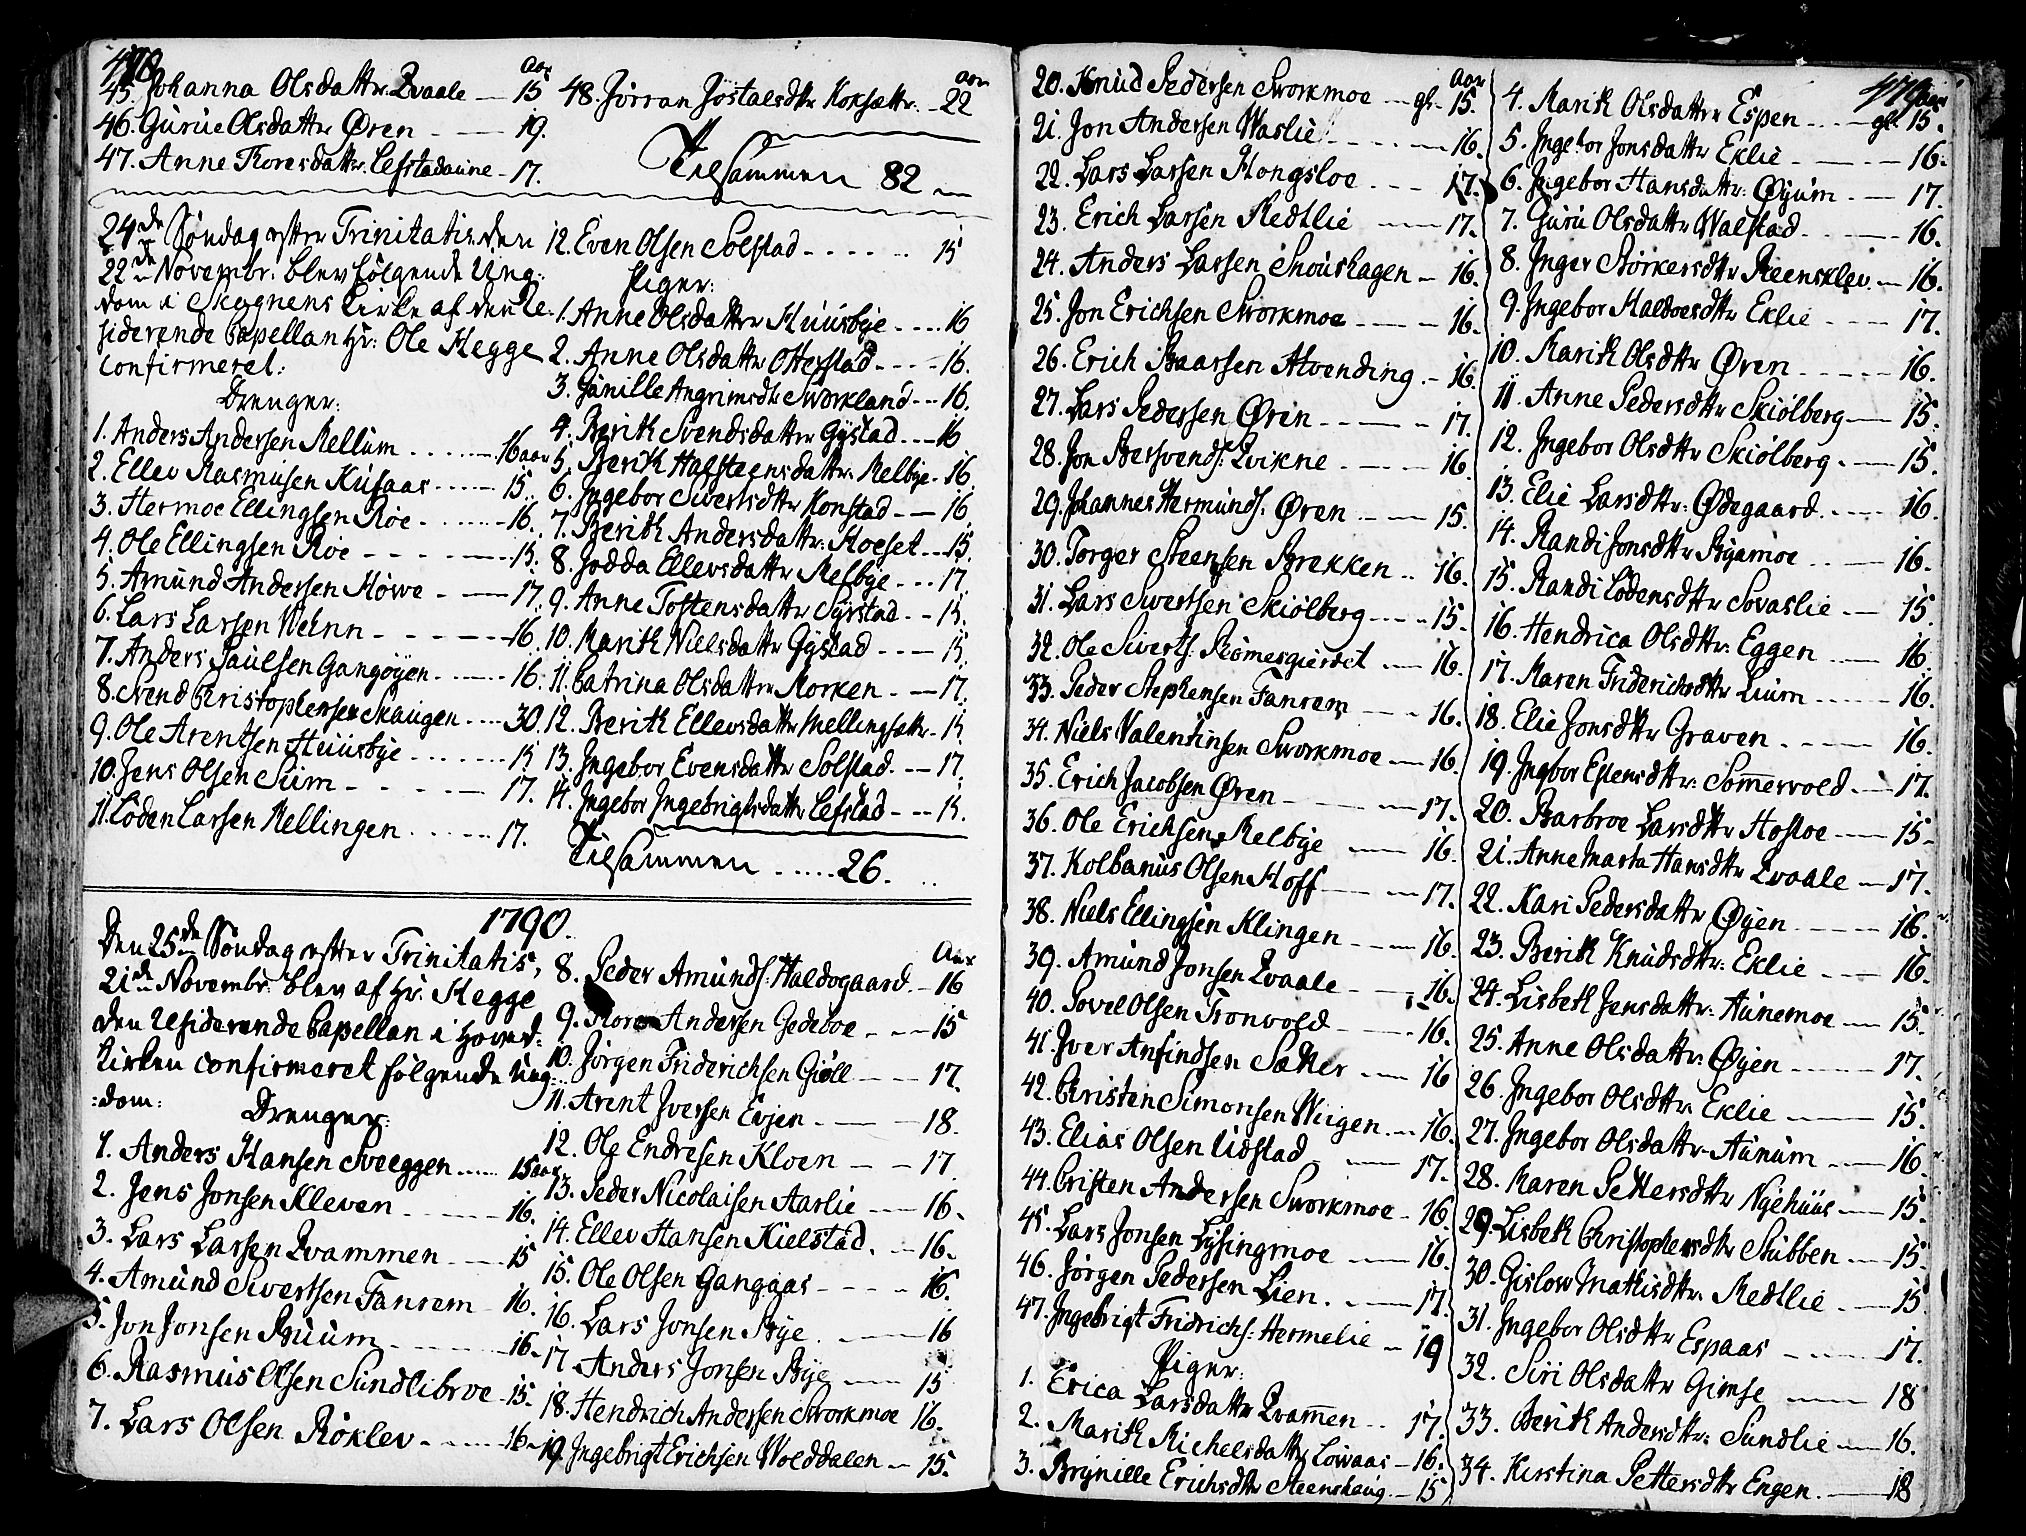 478
Aar
45. Johanna Olsdattr Qvaale — 15
46. Gurue Olsdattr Øren — 19.
47. Anne Thoresdattr: Lefstadaune - 17.
Aar
48. Jørran Jostalsdttr Koksættr: - 22
Tilsammen 82
24de Søndag efter Trinitatis, den
22de Novembr: blev følgende Ung-
dom i Skognens Kirke af den Re-
siderende Capellan Hr: Ole Hegge
confirmeret:
Drenger:
1. Anders Andersen Mellum ...... 16 aar
2. Ellev Rasmusen Kusaas ...... 15.
3. Hermoe Ellingsen Roe ...... 16.
4. Ole Ellingsen Roe - - - - 15.
5. Amund Andersen Howe - — 17.
6. Lars Larsen Wehnn - - - - 16.
7. Anders Paulsen Gangøyen ...... 16.
8. Svend Christophersen Skaugen .... 30.
9. Ole Arentsen Huusbye ....... 15
10. Jens Olsen Sum - - - - 17.
11. Loden Larsen Mellingen ...... 17.
12. Even Olsen Solstad ...... 15
Piger:
1. Anne Olsdattr Huusbye .... 16
2. Anne Olsdattr Otterstad - - - 16.
3. Gunille Angrimsdtr Sworkland --- 16.
4. Berith Svendsdattr Gystad --- 16
5. Berith Halsteensdattr: Melbye - 16.
6. Ingebor Sivertsdttr Konstad — 16.
7. Berith Andersdattr: Moeset --- 15.
8. Jodda Ellevsdattr Melbye --- 17.
9. Anne Tostensdattr Syrstad -- 15.
10. Marith Nielsdattr Gystad --- 15.
11. Catrina Olsdattr Morken - — 17.
12. Berith Ellevsdattr Mellingsættr - 15.
13. Ingebor Evensdattr Solstad. -- 17.
14. Ingebor Ingebrigtsdattr Lefstad --- 15.
Tilsammen ...... 26.
1790.
Den 25de Søndag efter Trinitatis,
21de Novembr: blev af Hr: Hegge
den Residerende Capellan i Hoved-
kirken confirmeret følgende Ung-
dom:
Drenger:
1. Anders Hansen Sveeggen ..... 15 aar
2. Jens Jonsen Kleven ------ 16.
3. Lars Larsen Qvammen ----- 15
4. Amund Sivertsen Fanrem - 16.
5. Jon Jonsen Bruum ------ 16.
6. Rasmus Olsen Sundlibroe - 15.
7. Lars Olsen Røklev ------ 16.
Aar
8. Peder Amunds: Haldogaard - 16
9. Thore Andersen Gedeboe - -- 15
10. Jørgen Friderichsen Gioll -- 17.
11. Arent Iversen Evjen --- 18.
12. Ole Endresen Kloen --- 17
13. Peder Nicolaisen Aarlie --- 16.
14. Ellev Hansen Kielstad. -- 16.
15. Ole Olsen Gangaas - - - - 16.
16. Lars Jonsen Bye --- 16
17. Anders Jonsen Bye --- 15
18. Hendrich Andersen Sworkmoe 16.
19. Ingebrigt Erichsen Wolddalen -- 15.
Aar
20. Knud Pedersen Sworkmoe -- gl. 15.
21. Jon Andersen Waslie ------ 16.
22. Lars Larsen Hongsloe --- 17.
23. Erich Larsen Medtlie --- 17.
24. Anders Larsen Snoushagen - 16.
25. Jon Erichsen Sworkmoe --- 16.
26. Erich Baarsen Alvending -- 16.
27. Lars Pedersen Øren --- 17.
28. Jon Bersvends: Qvikne --- 16.
29. Johannes Hermunds: Øren --- 15.
30. Torger Steensen Brekken .. 16.
31. Lars Sivertsen Skiølberg --- 15.
32. Ole Siverts: Romesgierdet --- 16.
33. Peder Stephensen Fanrem --- 16.
34. Niels Valentinsen Sworkmoe --- 16.
35. Erich Jacobsen Øren --- 17.
36. Ole Erichsen Melbye --- 16.
37. Kolbanus Olsen Hoff --- 17.
38. Niels Ellingsen Klingen --- 16.
39. Amund Jonsen Qvaale --- 16.
40. Povel Olsen Tronvold --- 16.
41. Iver Anfindsen Sætter --- 16
42. Christen Simonsen Wiigen --- 16.
43. Elias Olsen Lidstad --- 17.
44. Cristen Andersen Sworkmoe - 16.
45. Lars Jonsen Lysingmoe --- 16.
46. Jørgen Pedersen Lien. --- 17.
47. Ingebrigt Fridrichs: Hermelie -- 19
Piger:
1. Erica Larsdattr Qvamen .. 17.
2. Marith Michelsdattr Løwaas - 16.
3. Brynille Erichsdttr Steenshaug. - 15
479
Aar
4. Marith Olsdattr Espen --- gl. 15.
5. Ingebor Jonsdattr Eklie --- 16.
6. Ingebor Hansdattr: Øyum --- 17.
7. Guru Olsdattr Walstad --- 16.
8. Inger Størkersdttr Steensklev. -- 16.
9. Ingebor Haldoesdttr Eklie --- 17.
10. Marith Olsdttr Øren --- 16.
11. Anne Pedersdttr Skiølberg --- 15.
12. Ingebor Olsdttr Skiølberg. --- 15.
13. Elie Larsdttr: Ødegaard --- 16.
14. Randi Jonsdttr Byamoe --- 16.
15. Randi Lodensdttr Sovaslie --- 15.
16. Hendrica Olsdttr: Eggen --- 16.
17. Maren Friderichsdttr Lium --- 16.
18. Elie Jonsdttr Graven --- 16.
19. Ingbor Estensdttr: Somervold --- 17.
20. Barbroe Larsdttr Hostoe --- 15.
21. Anne Marta Hansdttr Qvaale -- 17.
22. Kari Pedersdattr Øyen --- 16.
23. Berith Knudsdttr: Eklie --- 16.
24. Lisbeth Jensdattr: Aunemoe --- 15.
25. Anne Olsdattr: Øyen --- 17.
26. Ingebor Olsdttr: Eklie --- 15.
27. Ingebor Olsdattr Aunum --- 16.
28. Maren Pettersdttr Nyehuus --- 15.
29. Lisbeth Christophersdttr Stubben --- 15.
30. Gislow Mathisdttr: Medtlie --- 15
31. Ingebor Olsdttr Espaas --- 17.
32. Siri Olsdattr Gimse --- 18
33. Berith Andersdttr: Sundlie --- 16.
34. Kirstina Pettersdttr Engen. --- 18